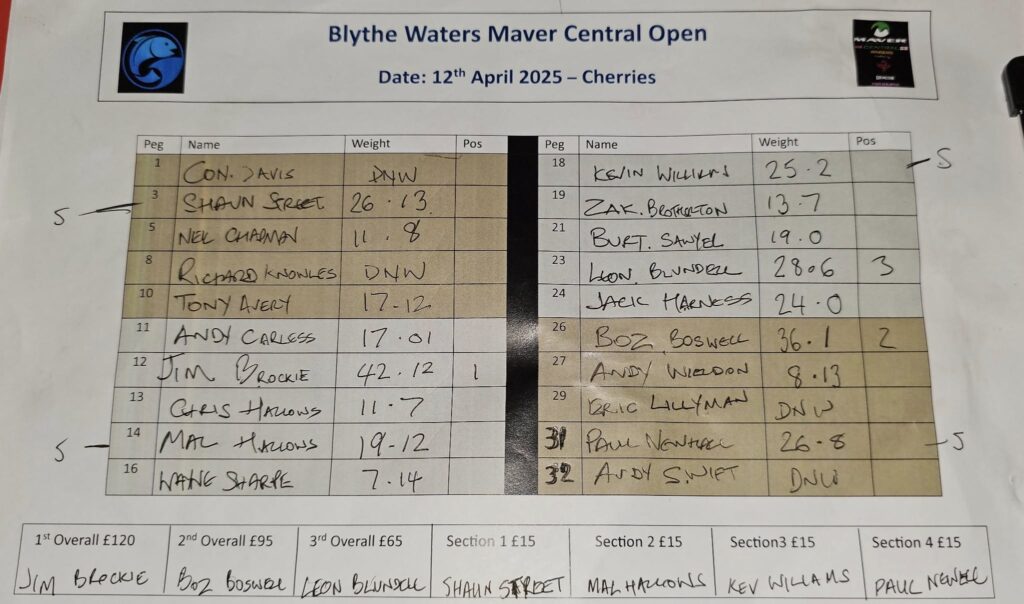 Blythe Waters Maver Central Open
MAVER
CENTRAL
Date: 12th April 2025 – Cherries
Peg Name Weight Pos
1 CON. DAVIS DNW
S 3 SHAUN STREET 26.13
5 NEIL CHAPMAN 11.8
8 RICHARD KNOWLES DNW
10 TONY AVERY 17-12
11 ANDY CARLESS 17.01
12 JIM BROCKIE 42.12 1
13 CHRIS HALLOWS 11-7
S 14 MAL HALLOWS 19-12
16 WAYNE SHARPE 7.14
Peg Name Weight Pos
18 KEVIN WILLIAMS 25.2 S
19 ZAK. BROTHERTON 13.7
21 BURT. SAWYEL 19.0
23 LEON BLUNDELL 28.6 3
24 JACK HARNESS 24.0
26 BOZ BOSWELL 36.1 2
27 ANDY WIELDON 8.13
29 ERIC LILLYMAN DNW
31 PAUL NEWELL 26.8 S
32 ANDY SWIFT DNW
1st Overall £120 2nd Overall £95 3rd Overall £65 Section 1 £15 Section 2 £15 Section3 £15 Section 4 £15
JIM BROCKIE BOZ BOSWELL LEON BLUNDELL SHAUN STREET MAL HALLOWS KEV WILLIAMS PAUL NEWELL